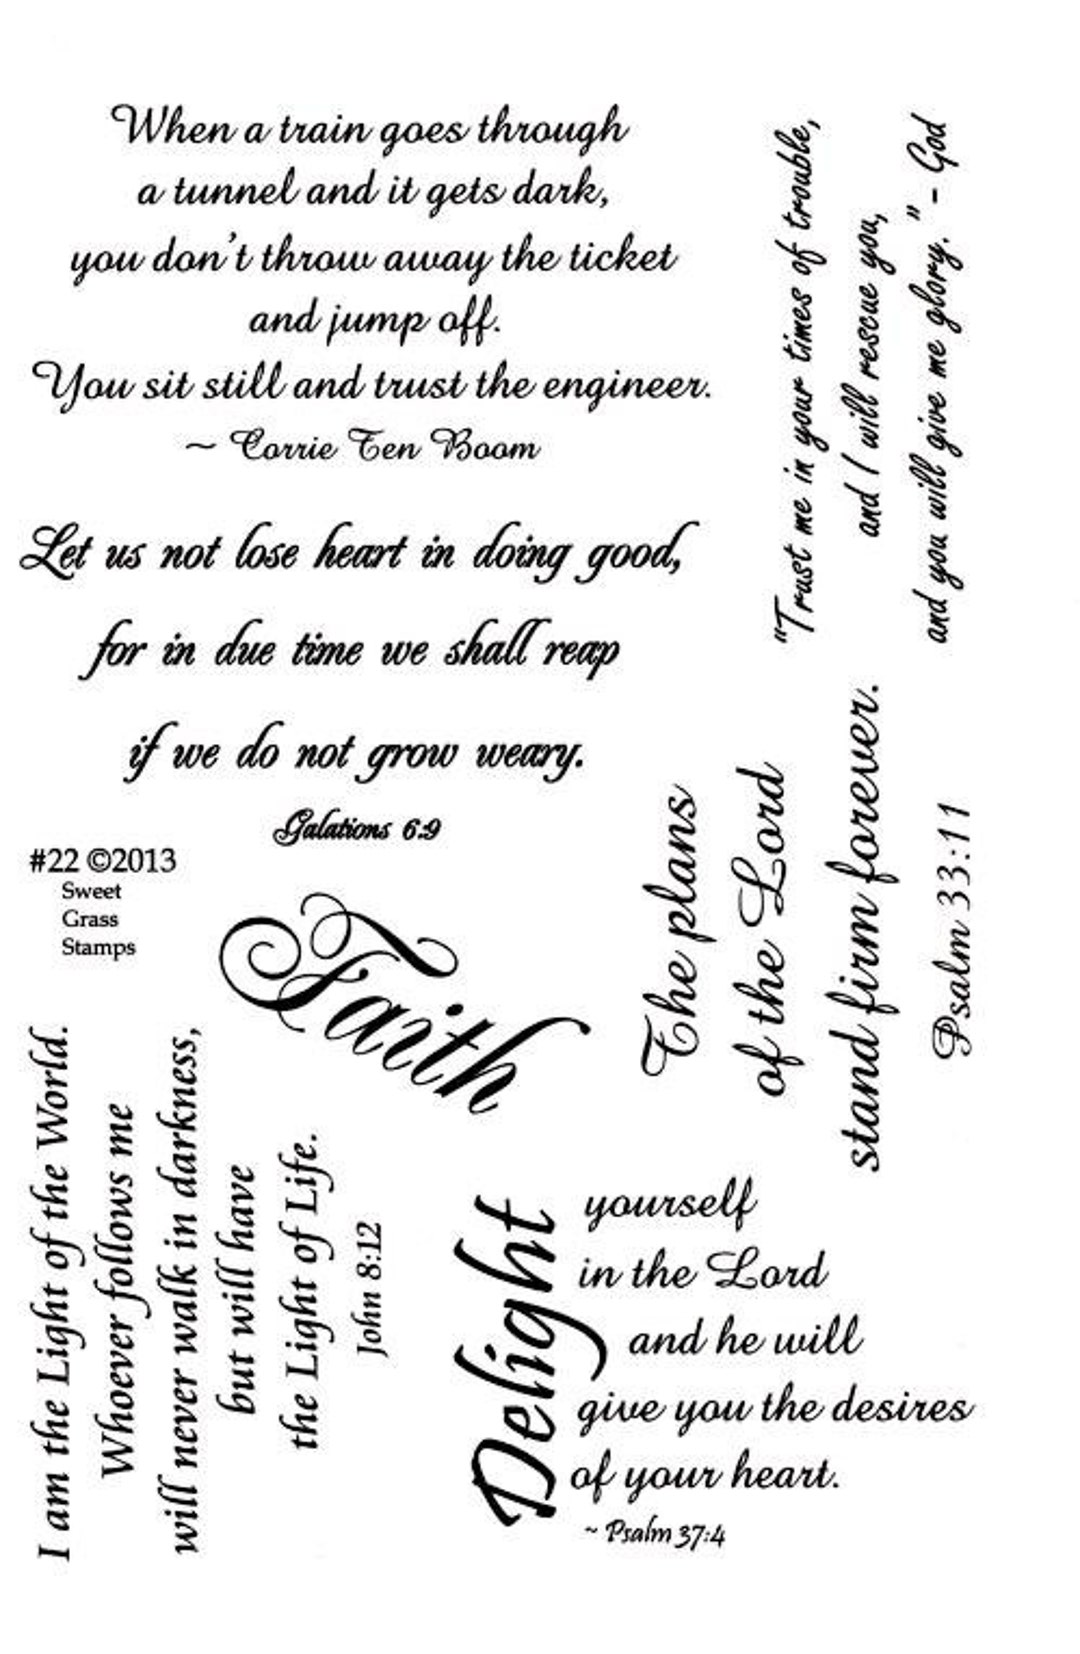 When a train goes through
a tunnel and it gets dark,
you don't throw away the ticket
and jump off.
You sit still and trust the engineer.
~ Corrie Ten Boom
"Trust me in your times of trouble,
and I will rescue you,
and you will give me glory." - God
Let us not lose heart in doing good,
for in due time we shall reap
if we do not grow weary.
Galations 6:9
#22 ©2013
Sweet
Grass
Stamps
Faith
The plans
of the Lord
stand firm forever.
Psalm 33:11
I am the Light of the World.
Whoever follows me
will never walk in darkness,
but will have
the Light of Life.
John 8:12
Delight
yourself
in the Lord
and he will
give you the desires
of your heart.
~ Psalm 37:4